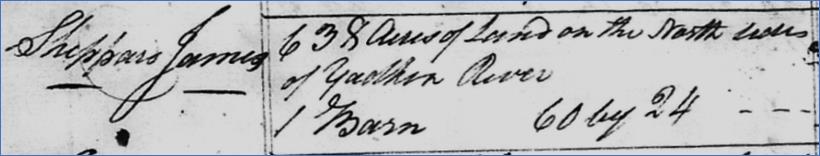 Sheppard James
638 Acres of Land on the North side
of Yadkin River
1 Barn 60 by 24 - - -